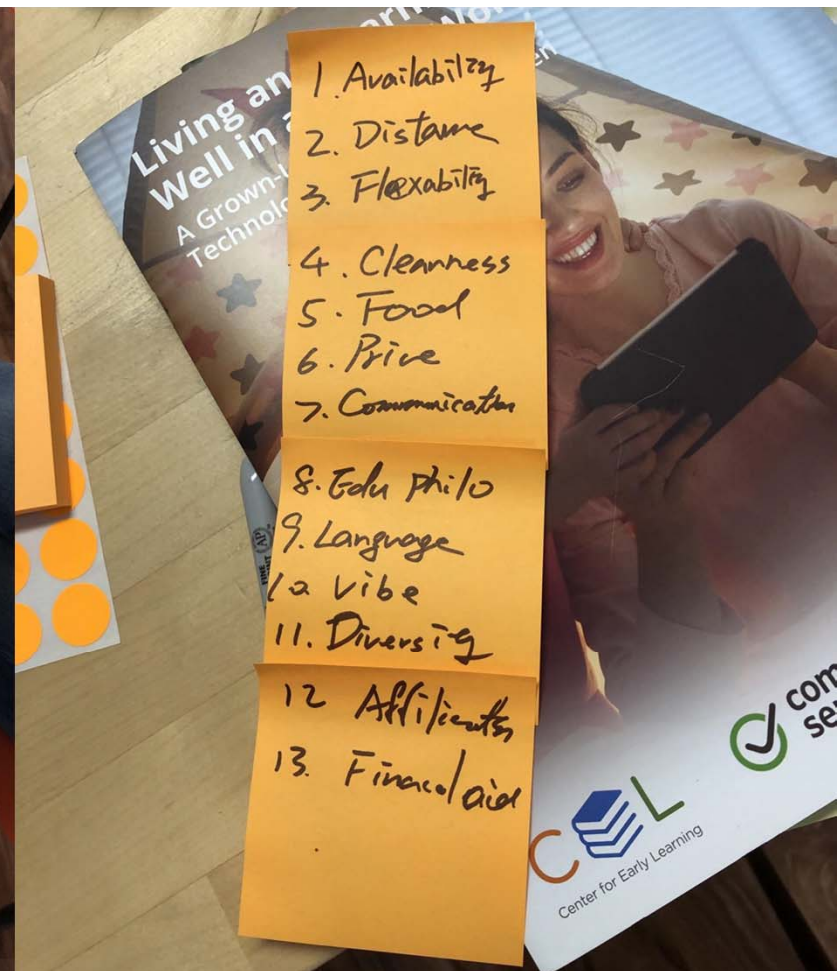 Living an
Well in a
A Grown-
Technolo
1. Availability
2. Distance
3. Flexability
4. Cleanness
5. Food
6. Price
7. Communication
8. Edu philo
9. Language
10 Vibe
11. Diversity
12 Affiliation
13. Finacal aid
FINE
(AP)
com
se
C L
Center for Early Learning